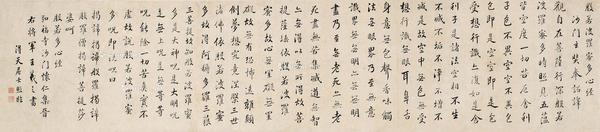 般若波羅蜜多心經
沙門玄奘奉詔譯
觀自在菩薩行深般若
波羅蜜多時照見五蘊
皆空度一切苦厄舍利
子色不異空空不異
色色即是空空即是色
受想行識亦復如是舍
利子是諸法空相不生
不滅不垢不淨不增不
減是故空中無色無受
想行識無眼耳鼻舌
身意無色聲香味觸
法無眼界乃至無意
識界無無明亦無無明
盡乃至無老死亦無老
死盡無苦集滅道無智
亦無得以無所得故菩
提薩埵依般若波羅
蜜多故心無罣礙無罣
礙故無有恐怖遠離顛
倒夢想究竟涅槃三世
諸佛依般若波羅蜜
多故得阿耨多羅三藐
三菩提故知般若波羅蜜
多是大神咒是大明咒
是無上咒是無等等
咒能除一切苦真實不
虛故說般若波羅蜜
多咒即說咒曰
揭諦揭諦般羅揭諦
般羅僧揭諦菩提莎
婆呵
般若多心經
弘福寺沙門懷仁集晉
右將軍王羲之書
居士臨